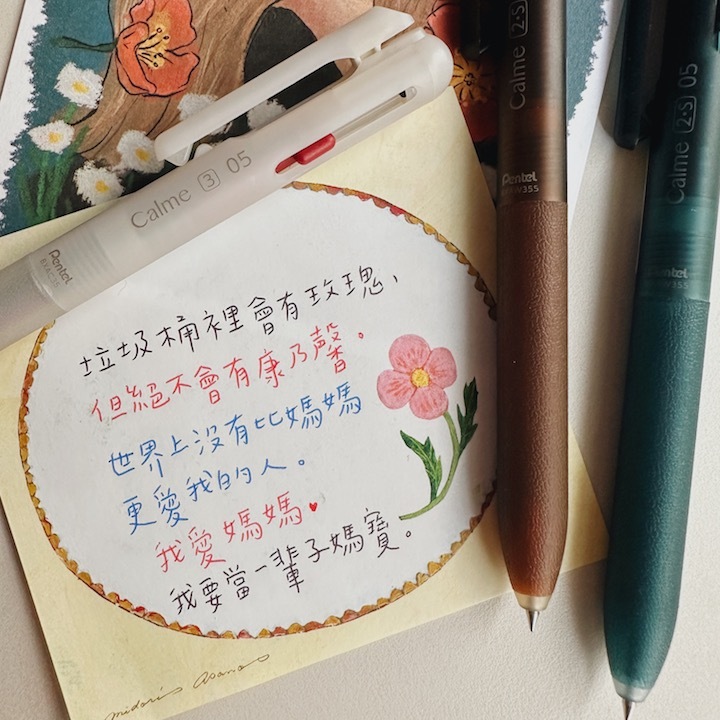 Calme 3 05
Pentel
Calme 2·S
Pentel
Calme 2·S 05
Pentel
垃圾桶裡會有玫瑰、
但絕不會有康乃馨。
世界上沒有比媽媽
更愛我的人。
我愛媽媽♥
我要當一輩子媽寶。
midori Asano